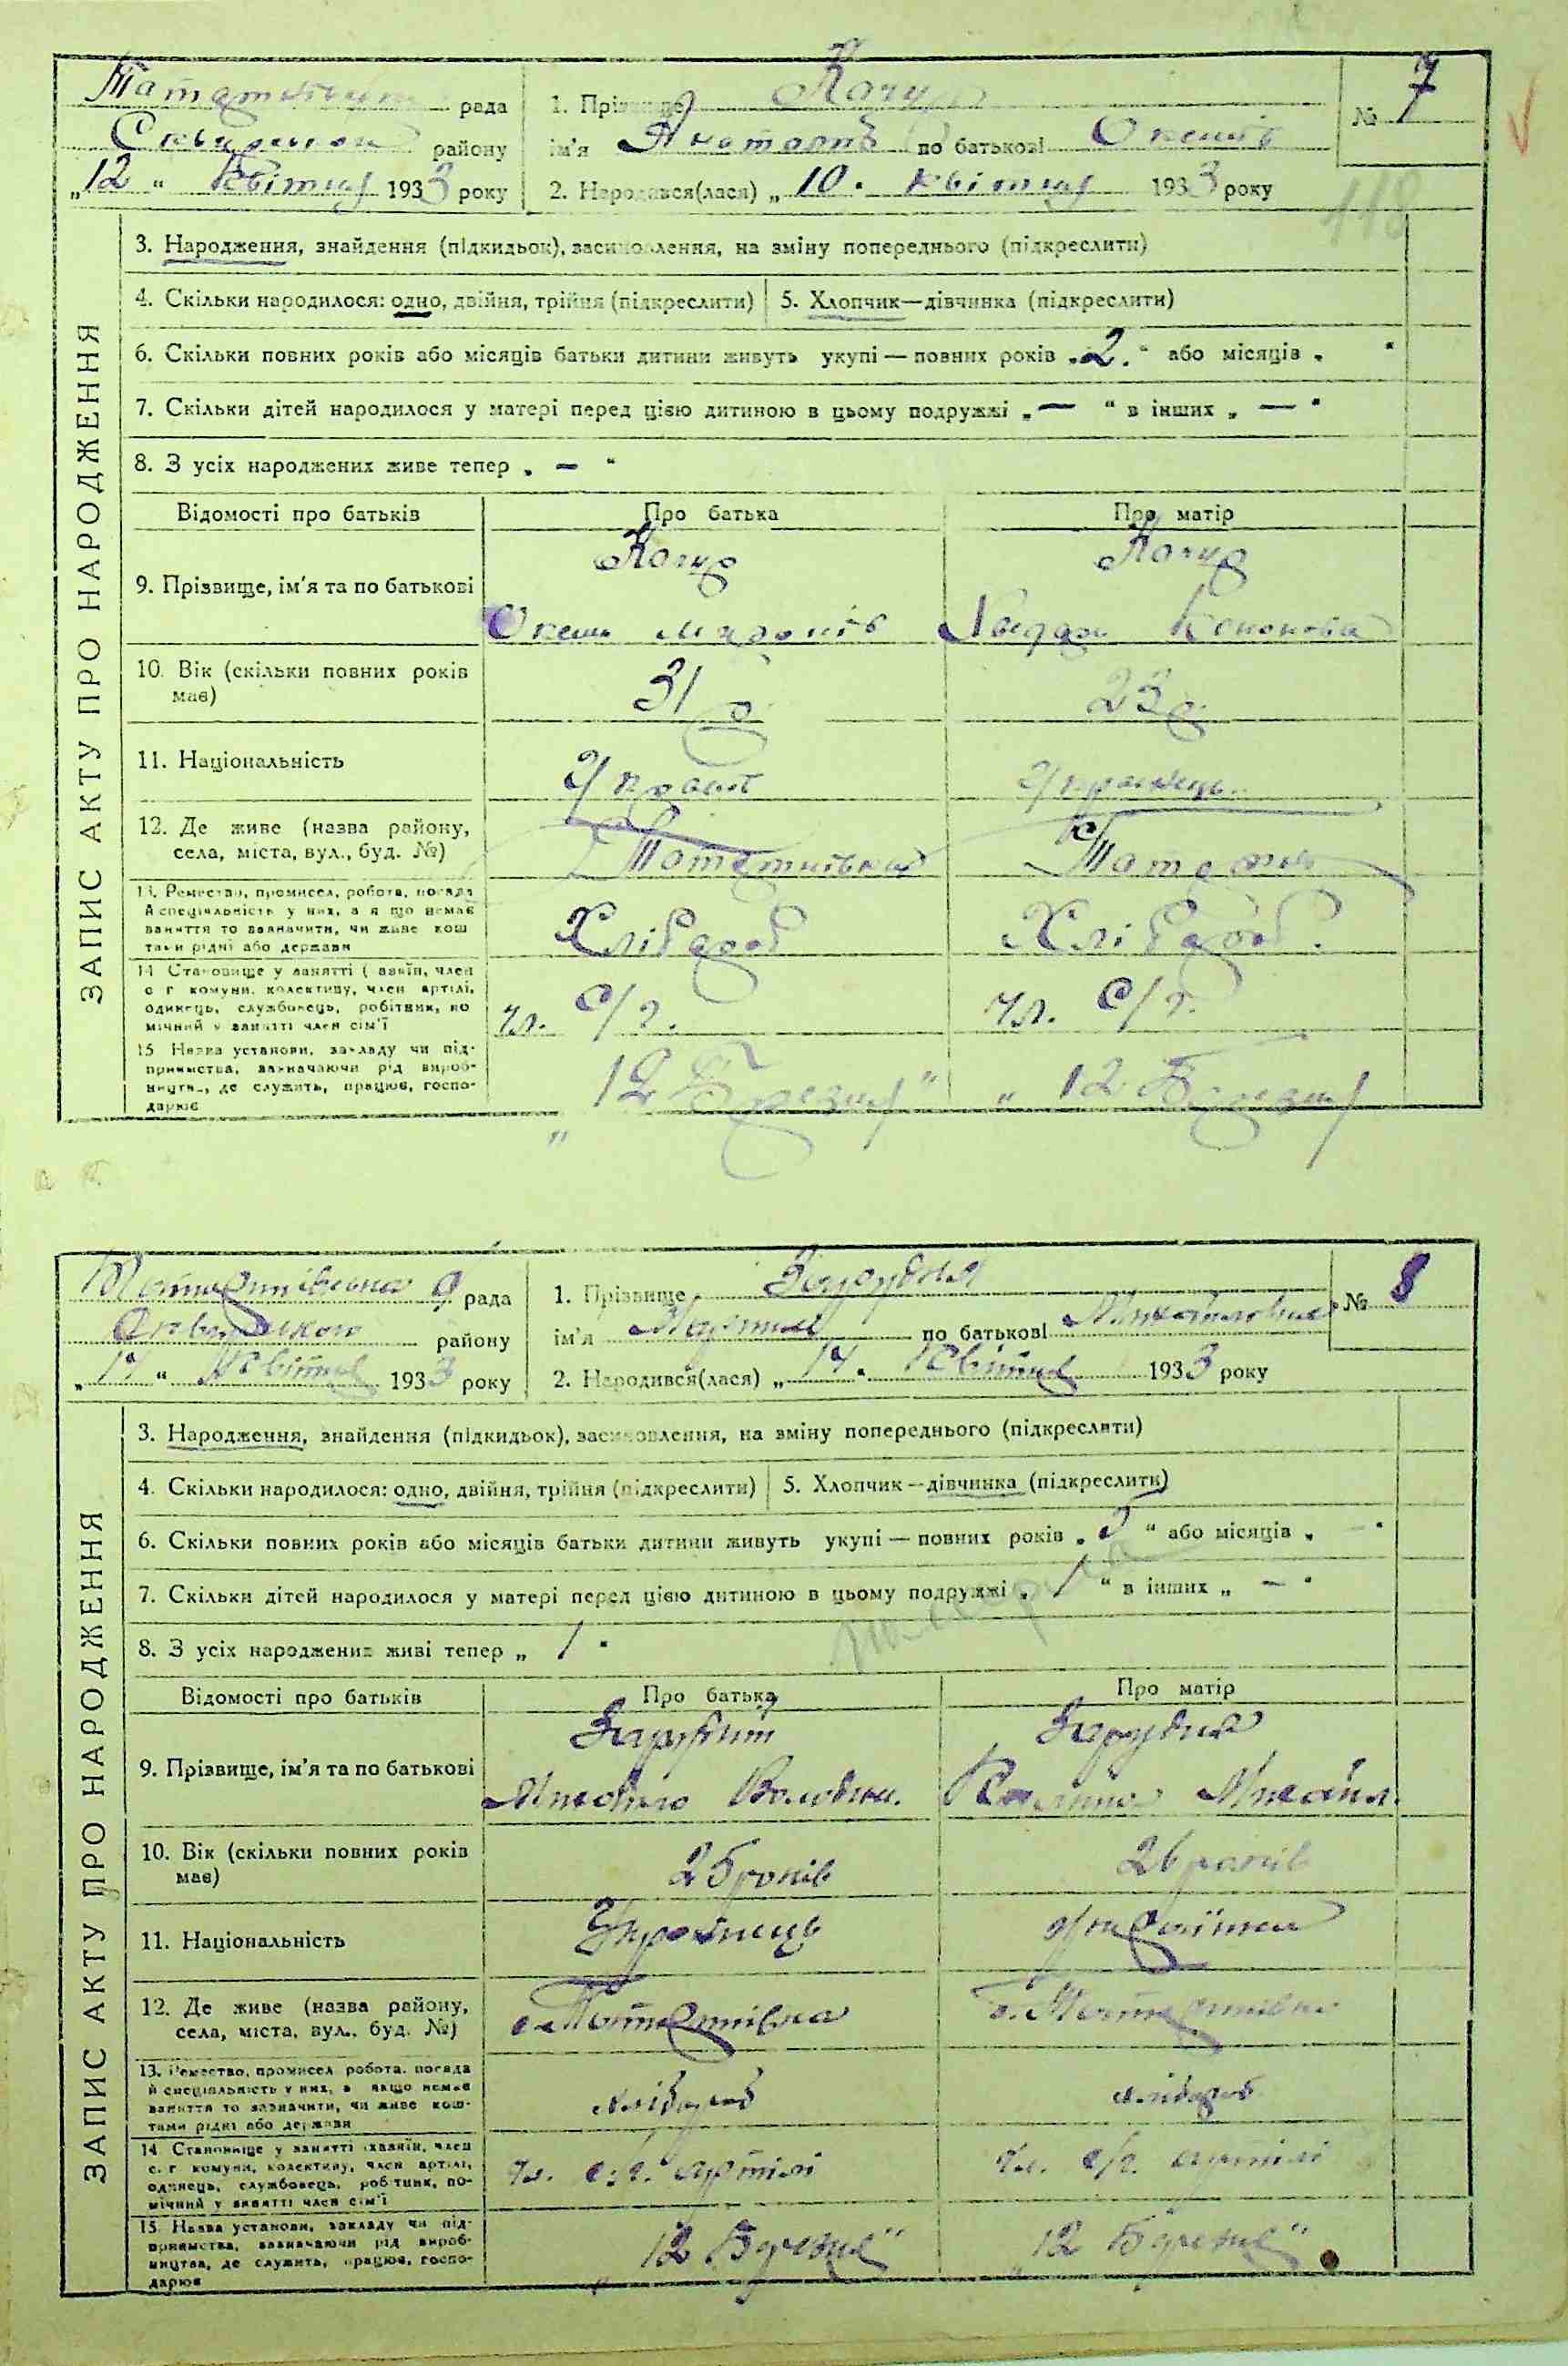 рада
1. Прізвище
№ 7
району
ім'я по батькові
„12“ Квітня 1933 року
2. Народився(лася) „10. Квітня 1933 року
118
ЗАПИС АКТУ ПРО НАРОДЖЕННЯ
3. Народження, знайдення (підкидьок), засиновлення, на зміну попереднього (підкреслити)
4. Скільки народилося: одно, двійня, трійня (підкреслити)
5. Хлопчик—дівчинка (підкреслити)
6. Скільки повних років або місяців батьки дитини живуть укупі — повних років „2.“ або місяців „ “
7. Скільки дітей народилося у матері перед цією дитиною в цьому подружжі „—“ в інших „—“
8. З усіх народжених живе тепер „—“
Відомості про батьків
Про батька
Про матір
9. Прізвище, ім'я та по батькові
Кононова
10. Вік (скільки повних років має)
31 р.
23 р.
11. Національність
12. Де живе (назва району, села, міста, вул., буд. №)
13. Ремество, промисел, робота, посада
й спеціяльність у них, а якщо немає
заняття то зазначити, чи живе кош
тами рідні або держави
Хлібороб
Хлібороб.
14 Становище у занятті (хазяїн, член
с. г. комуни, колективу, член артілі,
одинець, службовець, робітник, по
мічний у занятті член сім'ї
чл. с/г.
чл. с/г.
15 Назва установи, закладу чи під-
приємства, зазначаючи рід вироб-
ництва, де служить, працює, госпо-
дарює
„12 Березня“
„12 Березня
рада
1. Прізвище Зарудня
№ 8
району
ім'я по батькові Михайловна
Квітня 1933 року
2. Народився(лася) „14. Квітня 1933 року
ЗАПИС АКТУ ПРО НАРОДЖЕННЯ
3. Народження, знайдення (підкидьок), засиновлення, на зміну попереднього (підкреслити)
4. Скільки народилося: одно, двійня, трійня (підкреслити)
5. Хлопчик—дівчинка (підкреслити)
6. Скільки повних років або місяців батьки дитини живуть укупі — повних років „5“ або місяців „—“
7. Скільки дітей народилося у матері перед цією дитиною в цьому подружжі „1“ в інших „—“
8. З усіх народжених живі тепер „1“
Відомості про батьків
Про батька
Про матір
9. Прізвище, ім'я та по батькові
Зарудній
Зарудня
Михайло Володим.
Михайл.
10. Вік (скільки повних років має)
25 років
26 років
11. Національність
Українець
Українка
12. Де живе (назва району, села, міста, вул., буд. №)
13. Ремество, промисел робота, посада
й спеціяльність у них, а якщо немає
заняття то зазначити, чи живе кош-
тами рідні або держави
хлібороб
хлібороб
14 Становище у занятті (хазяїн, член
с. г комуни, колективу, член артілі,
одинець, службовець, робітник, по-
мічний у занятті член сім'ї
чл. с.г. артілі
чл. с/г. артілі
15. Назва установи, закладу чи під-
приємства, зазначаючи рід вироб-
ництва, де служить, працює, госпо-
дарює
„12 Березня“
„12 Березня“